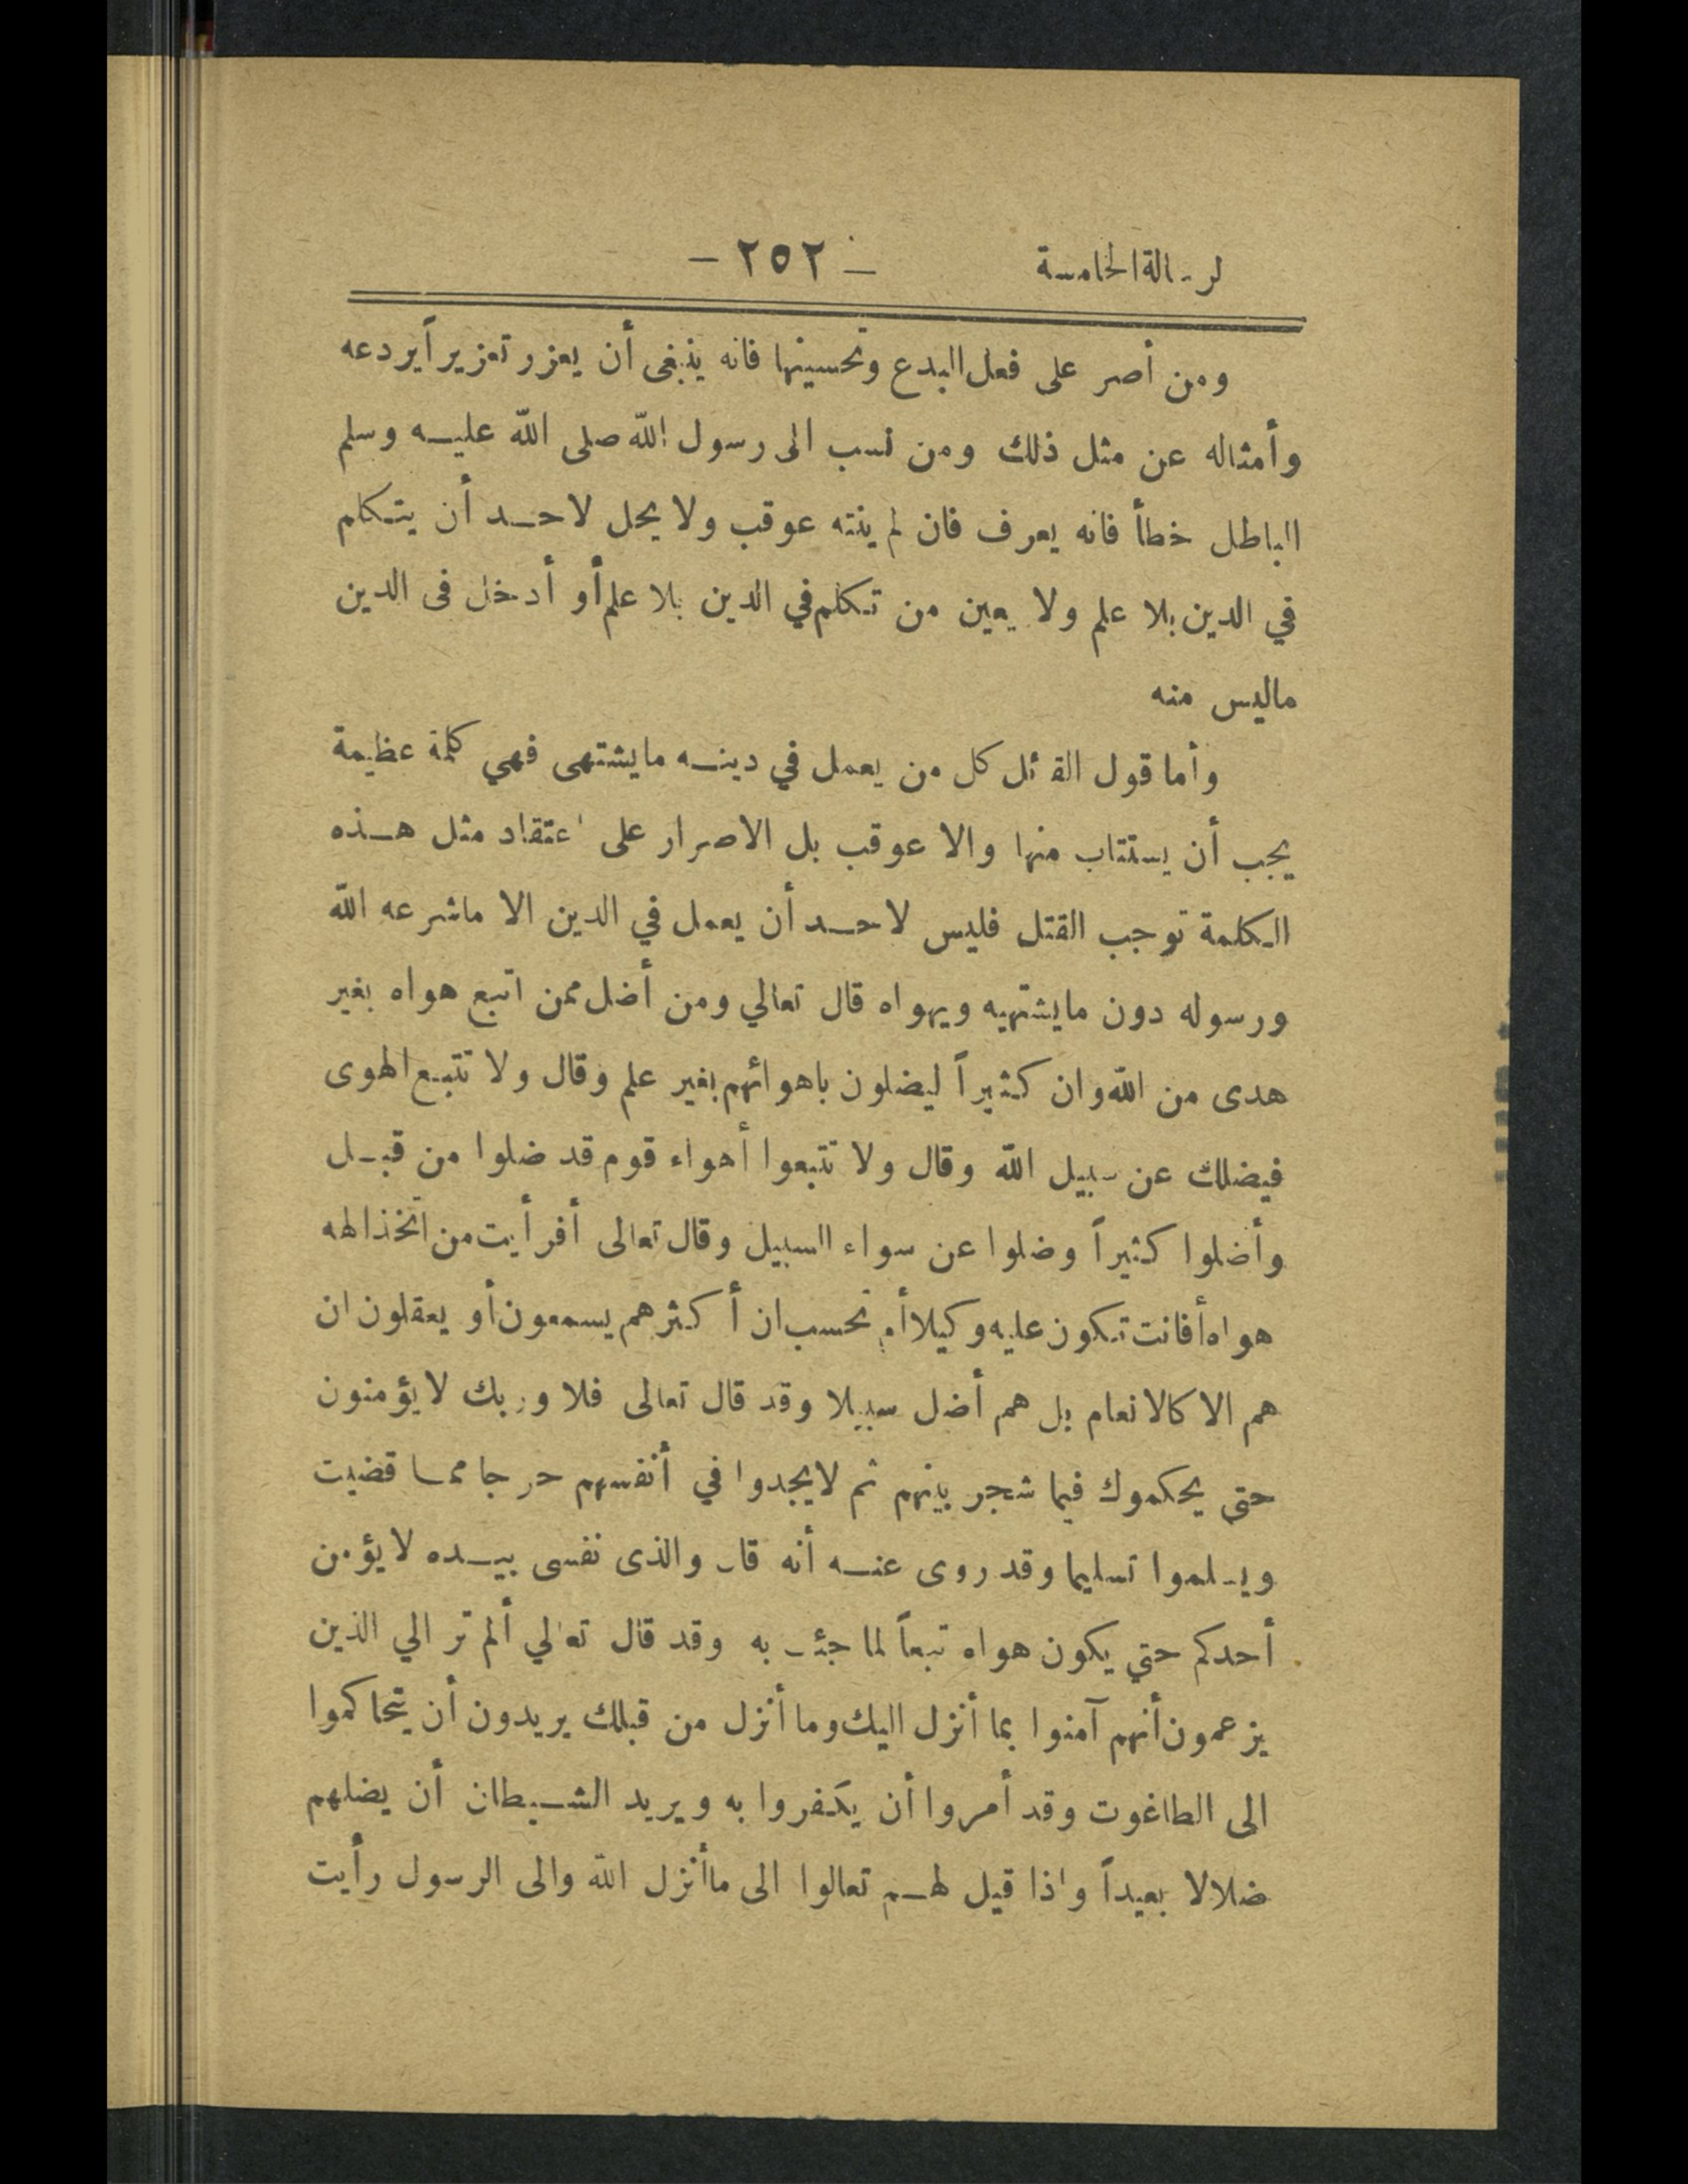 لرسالة الخامسة — ٢٥٢ —
ومن أصر على فعل البدع وتحسينها فانه ينبغى أن يعزر تعزيراً يردعه
وأمثاله عن مثل ذلك ومن نسب الى رسول الله صلى الله عليه وسلم
الباطل خطأ فانه يعرف فان لم ينته عوقب ولا يحل لاحد أن يتكلم
في الدين بلا علم ولا يعين من تكلم في الدين بلا علم أو أدخل فى الدين
ماليس منه
وأما قول القائل كل من يعمل في دينه مايشتهى فهي كلمة عظيمة
يجب أن يستتاب منها والا عوقب بل الاصرار على اعتقاد مثل هذه
الكلمة توجب القتل فليس لاحد أن يعمل في الدين الا ماشرعه الله
ورسوله دون مايشتهيه ويهواه قال تعالي ومن أضل ممن اتبع هواه بغير
هدى من الله وان كثيراً ليضلون باهوائهم بغير علم وقال ولا تتبع الهوى
فيضلك عن سبيل الله وقال ولا تتبعوا أهواء قوم قد ضلوا من قبل
وأضلوا كثيراً وضلوا عن سواء السبيل وقال تعالى أفرأيت من اتخذ الهه
هواه أفانت تكون عليه وكيلا أم تحسب ان أكثرهم يسمعون أو يعقلون ان
هم الا كالانعام بل هم أضل سبيلا وقد قال تعالى فلا وربك لايؤمنون
حتى يحكموك فيما شجر بينهم ثم لايجدوا في أنفسهم حرجا مما قضيت
ويسلموا تسليما وقد روى عنه أنه قال والذى نفسى بيده لايؤمن
أحدكم حتي يكون هواه تبعاً لما جئت به وقد قال تعالي ألم تر الي الذين
يزعمون أنهم آمنوا بما أنزل اليك وما أنزل من قبلك يريدون أن يتحاكموا
الى الطاغوت وقد أمروا أن يكفروا به ويريد الشيطان أن يضلهم
ضلالا بعيداً واذا قيل لهم تعالوا الى ماأنزل الله والى الرسول رأيت